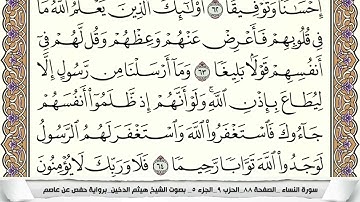 إِحْسَٰنًا وَتَوْفِيقًا ٦٢ أُو۟لَٰٓئِكَ ٱلَّذِينَ يَعْلَمُ ٱللَّهُ مَا
فِى قُلُوبِهِمْ فَأَعْرِضْ عَنْهُمْ وَعِظْهُمْ وَقُل لَّهُمْ فِىٓ
أَنفُسِهِمْ قَوْلًۢا بَلِيغًا ٦٣ وَمَآ أَرْسَلْنَا مِن رَّسُولٍ إِلَّا
لِيُطَاعَ بِإِذْنِ ٱللَّهِ وَلَوْ أَنَّهُمْ إِذ ظَّلَمُوٓا۟ أَنفُسَهُمْ
جَآءُوكَ فَٱسْتَغْفَرُوا۟ ٱللَّهَ وَٱسْتَغْفَرَ لَهُمُ ٱلرَّسُولُ
لَوَجَدُوا۟ ٱللَّهَ تَوَّابًا رَّحِيمًا ٦٤ فَلَا وَرَبِّكَ لَا يُؤْمِنُونَ
سورة النساء _ الصفحة ٨٨_ الحزب ٩_ الجزء ٥_ بصوت الشيخ ميثم الدخين_ برواية حفص عن عاصم